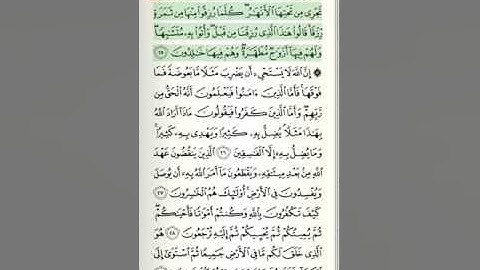 تَجْرِى مِن تَحْتِهَا ٱلْأَنْهَٰرُ كُلَّمَا رُزِقُوا۟ مِنْهَا مِن ثَمَرَةٍ
رِّزْقًا قَالُوا۟ هَٰذَا ٱلَّذِى رُزِقْنَا مِن قَبْلُ وَأُتُوا۟ بِهِۦ مُتَشَٰبِهًا
وَلَهُمْ فِيهَآ أَزْوَٰجٌ مُّطَهَّرَةٌ وَهُمْ فِيهَا خَٰلِدُونَ ٢٥
۞ إِنَّ ٱللَّهَ لَا يَسْتَحْىِۦٓ أَن يَضْرِبَ مَثَلًا مَّا بَعُوضَةً فَمَا
فَوْقَهَا فَأَمَّا ٱلَّذِينَ ءَامَنُوا۟ فَيَعْلَمُونَ أَنَّهُ ٱلْحَقُّ مِن
رَّبِّهِمْ وَأَمَّا ٱلَّذِينَ كَفَرُوا۟ فَيَقُولُونَ مَاذَآ أَرَادَ ٱللَّهُ
بِهَٰذَا مَثَلًا يُضِلُّ بِهِۦ كَثِيرًا وَيَهْدِى بِهِۦ كَثِيرًا
وَمَا يُضِلُّ بِهِۦٓ إِلَّا ٱلْفَٰسِقِينَ ٢٦ ٱلَّذِينَ يَنقُضُونَ عَهْدَ
ٱللَّهِ مِنۢ بَعْدِ مِيثَٰقِهِۦ وَيَقْطَعُونَ مَآ أَمَرَ ٱللَّهُ بِهِۦٓ أَن يُوصَلَ
وَيُفْسِدُونَ فِى ٱلْأَرْضِ أُو۟لَٰٓئِكَ هُمُ ٱلْخَٰسِرُونَ
٢٧
كَيْفَ تَكْفُرُونَ بِٱللَّهِ وَكُنتُمْ أَمْوَٰتًا فَأَحْيَٰكُمْ
ثُمَّ يُمِيتُكُمْ ثُمَّ يُحْيِيكُمْ ثُمَّ إِلَيْهِ تُرْجَعُونَ ٢٨ هُوَ
ٱلَّذِى خَلَقَ لَكُم مَّا فِى ٱلْأَرْضِ جَمِيعًا ثُمَّ ٱسْتَوَىٰٓ إِلَى